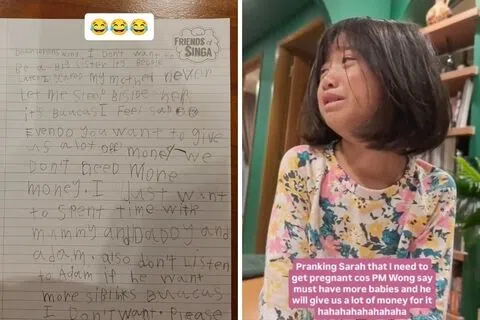 FRIENDS of
SINGA
WONG, I DON'T WANT
Be a BIG SISTER
my mother never
Let me SLeep BISIDe her
its BUACAS I FeeL SAD
EVENDO YOU WANT to give
US a Lot OFF money we
DON'T NEED MORE
money. I JUST WANT
to SPENT TIME WITH
mammy AND DADDY AND
aDAM. aLSO DON'T LISTEN
to ADam IF he WANT
more SIBLINGS BUACAS
I DON'T WANT. PLease
Pranking Sarah that I need to
get pregnant cos PM Wong say
must have more babies and he
will give us a lot of money for it
hahahahahahahaha